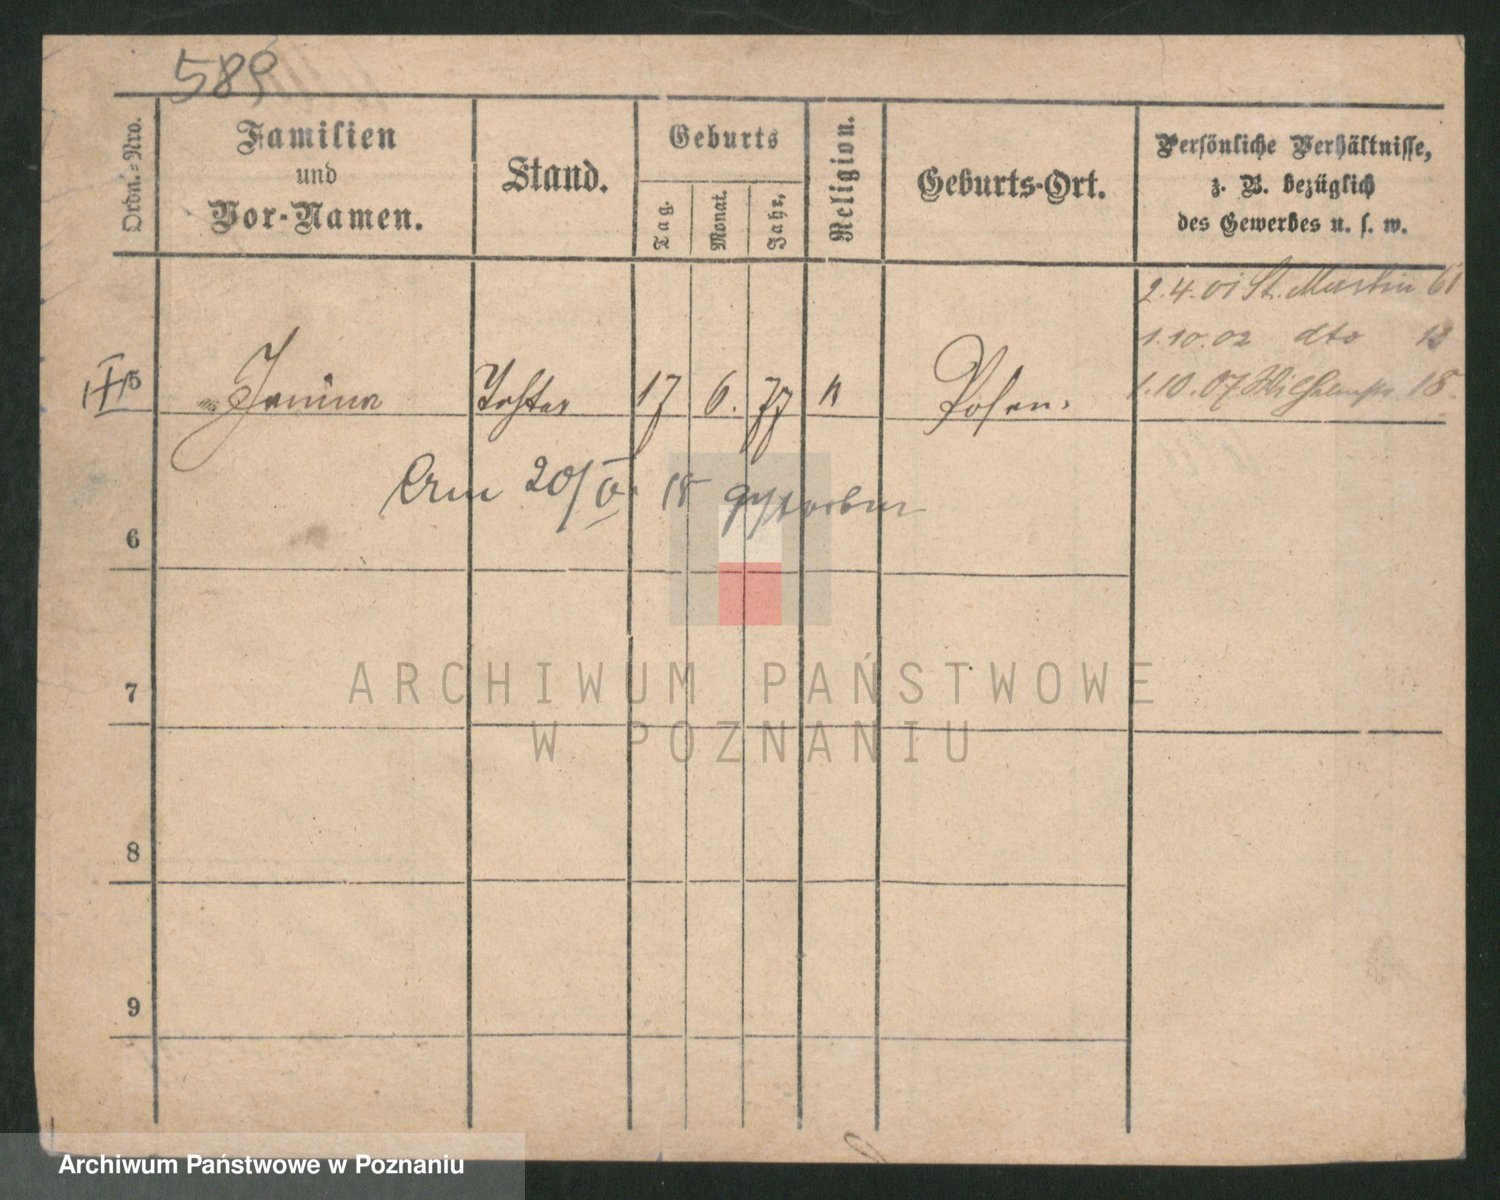 589
Ordn.-Nro.
Familien
und
Vor-Namen.
Stand.
Geburts
Tag.
Monat.
Jahr.
Religion.
Geburts-Ort.
Persönliche Verhältnisse,
z. B. bezüglich
des Gewerbes u. s. w.
2.4.01 St. Martin 61
1.10.02 dto 13
1.10.07 18
5 Janina Tochter 17 6. 77 k Posen.
Am 20/V. 18 gestorben
6
ARCHIWUM PAŃSTWOWE
7
W POZNANIU
8
9
Archiwum Państwowe w Poznaniu